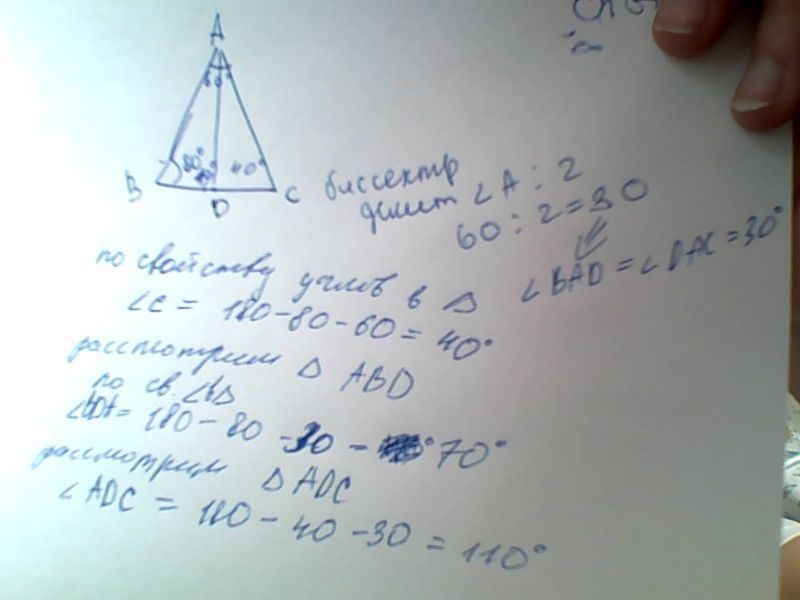 A
60
80°
40°
B
D
C
биссектр
делит ∠A : 2
60 : 2 = 30
∠BAD = ∠DAC = 30°
по свойству углов в △
∠C = 180 - 80 - 60 = 40°
рассмотрим △ ABD
по св. ∠ в △
∠BDA = 180 - 80 - 30 - 70°
рассмотрим △ ADC
∠ ADC = 180 - 40 - 30 = 110°